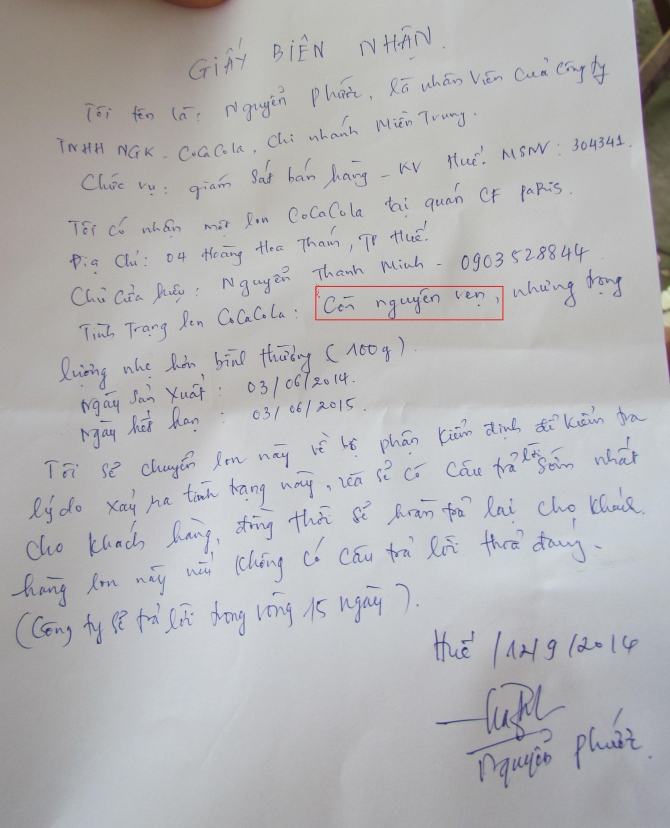 GIẤY BIÊN NHẬN.
Tôi tên là: Nguyễn Phước, là nhân viên của công ty
TNHH NGK - CoCaCola, Chi nhánh Miền Trung.
Chức vụ: giám sát bán hàng - KV Huế. MSNV: 304341.
Tôi có nhận một lon CoCaCola tại quán CF PARIS.
Địa Chỉ: 04 Hoàng Hoa Thám, TP Huế.
Chủ cửa hiệu: Nguyễn Thanh Minh - 0903528844
Tình Trạng lon CoCaCola: Còn nguyên vẹn, nhưng trọng
lượng nhẹ hơn bình thường (100g).
Ngày sản xuất: 03/06/2014.
Ngày hết hạn: 03/06/2015.
Tôi sẽ chuyển lon này về bộ phận kiểm định để kiểm tra
lý do xảy ra tình trạng này, và sẽ có câu trả lời sớm nhất
cho khách hàng, đồng thời sẽ hoàn trả lại cho khách
hàng lon này nếu không có câu trả lời thoả đáng.
(Công ty sẽ trả lời trong vòng 15 ngày).
Huế /12/9/2014
Nguyễn Phước.